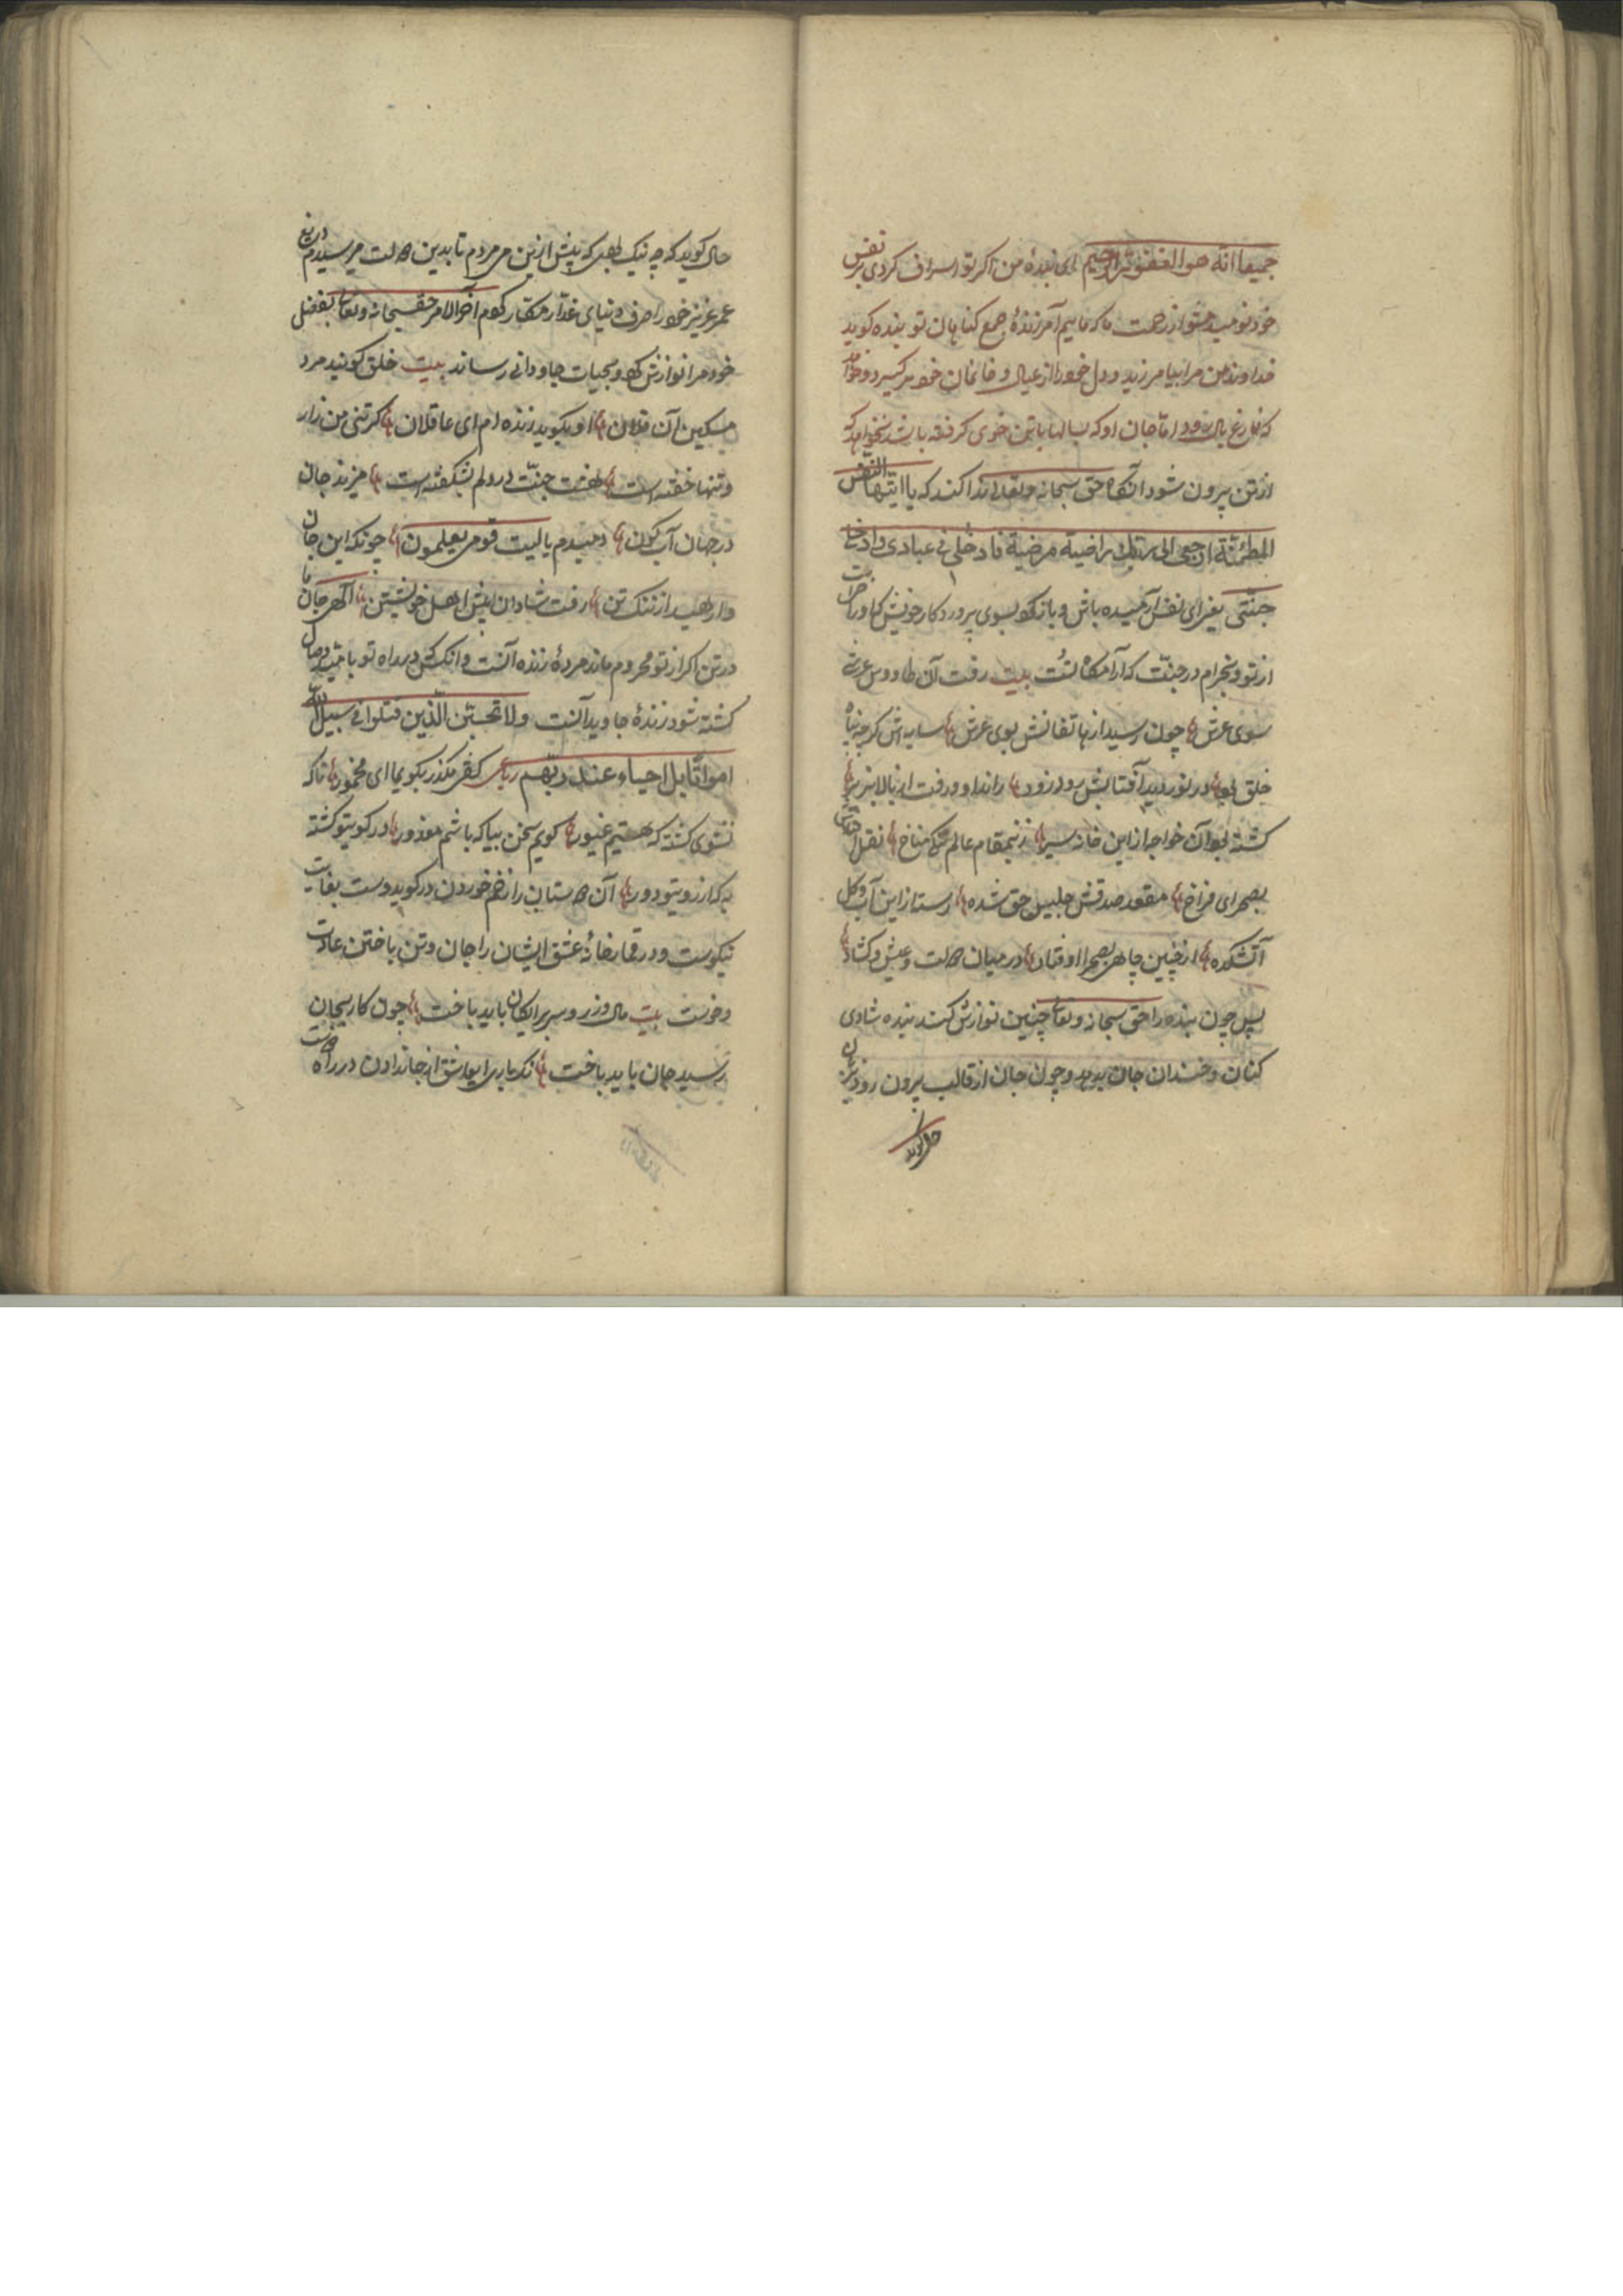 جمیعا انّه هو الغفور الرّحیم ای بندهٔ من اکر تو اسراف کردی بر نفس
خود نومید مشو از رحمت ما که ماییم آمرزندهٔ جمع کناهان تو بنده کوید
خداوند من مرا بیامرزید و دل خود را از عیال و خانمان خود برکیرد و خواهد
که فارغ بال رود امّا جان او که سالها با تن خوی کرفته باشد نخواهد که
از تن بیرون شود آنکاه حق سبحانه و تعالی ندا کند که یا ایّتها النّفس
المطمئنّة ارجعی الی ربّک راضیة مرضیة فادخلی فی عبادی وادخلی
جنّتی یعنی ای نفس آرمیده باش و باز کرد بسوی پروردکار خویش که او راضیست
از تو و بخرام در جنّت که آرامکاه تست بیت رفت آن طاووس عرشی
سوی عرش چون رسید از هاتفانش بوی عرش سایه اش کرچه پناه
خلق بود در نورد دید آفتابش زود زود راند او ورفت از بالا بزیر
کشته بود آن خواجه از این خانه سیر زنیمقام عالم تنک مناخ نقل افتادش
بصحرای فراخ مقعد صدقش جلیس حق شده رسته از این آب و کل
آتشکده از چنین چاهی بصحرا اوفتاد در میان دولت و عیش و کشاد
پس چون بنده را حق سبحانه و تعالی چنین نوازش کند بنده شادی
کنان و خندان جان بدهد و چون جان از قالب بیرون رود بزبان
حال کوید
حال کوید که چه نیک بودی که پیش ازین می مردم تا بدین دولت میرسیدم دریغ
عمر عزیز خود را صرف دنیای غدّار مکّار کردم آخر الامر حق سبحانه و تعالی بفضل
خود مرا نوازش کرد و بحیات جاودانی رساند بیت خلق کویند مرد
مسکین آن فلان او بکوید زنده ام ای عاقلان کر تن من زار
و تنها خفته است هشت جنّت در دلم بشکفته است میزند جان
در جهان آب کون دمبدم یا لیت قومی یعلمون چونکه این جان
وارهید از ننک تن رفت شادان پیش اصل خویشتن الهی جان ما
در تن اکر از تو محروم ماند مردهٔ زنده آنست و انکس که در راه تو با تیغ وصال
کشته شود زندهٔ جاوید آنست ولا تحسبنّ الّذین قتلوا فی سبیل الله
امواتا بل احیاء عند ربّهم رباعی کفتی مکذر بکوی ما ای مخمور تا که
نشوی کشته که هستیم غیور کویم سخن بیا که باشم معذور در کوی تو کشته
به که از روی تو دور آن دوستان را زخم خوردن در کوی دوست بغایت
نیکوست و در قمارخانهٔ عشق ایشان را جان و تن باختن عادت
و خوست بیت مال و زر و سر برایکان باید باخت چون کار بجان
رسید جان باید باخت نکه داری ایعاشق از جاندادن در راه دوست